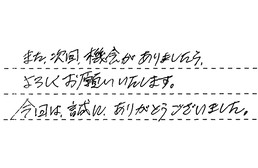 また、次回、機会がありましたら、
よろしくお願いいたします。
今回は、誠に、ありがとうございました。